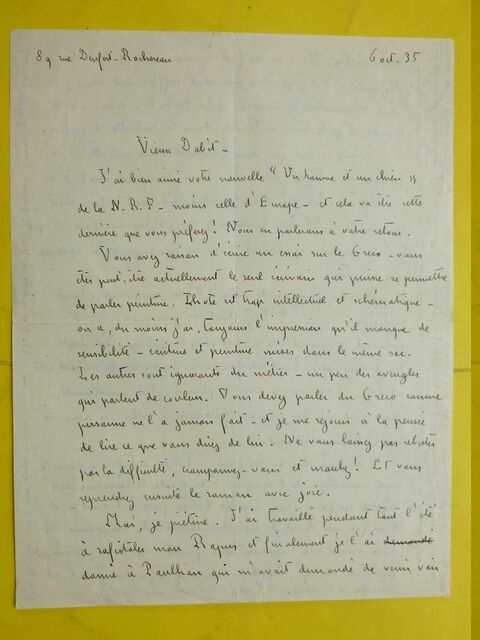 89 rue Denfert-Rochereau 6 oct. 35
Vieux Dabit -
J'ai bien aimé votre nouvelle "Un homme et un chien"
de la N.R.F - moins celle d'Europe - et cela va être cette
dernière que vous préférez! Nous en parlerons à votre retour.
Vous avez raison d'écrire un essai sur le Greco - vous
êtes peut-être actuellement le seul écrivain qui puisse se permettre
de parler peinture. Lhote est trop intellectuel et schématique -
on a, du moins j'ai, toujours l'impression qu'il manque de
sensibilité - écriture et peinture mises dans le même sac.
Les autres sont ignorants du métier - un peu des aveugles
qui parlent de couleur. Vous devez parler du Greco comme
personne ne l'a jamais fait - et je me réjouis à la pensée
de lire ce que vous direz de lui. Ne vous laissez pas rebuter
par la difficulté, cramponnez-vous et marchez! Et vous
reprendrez ensuite le roman avec joie.
Moi, je piétine. J'ai travaillé pendant tout l'été
à rafistoler mon Rapus et finalement je l'ai demandé
donné à Paulhan qui m'avait demandé de venir